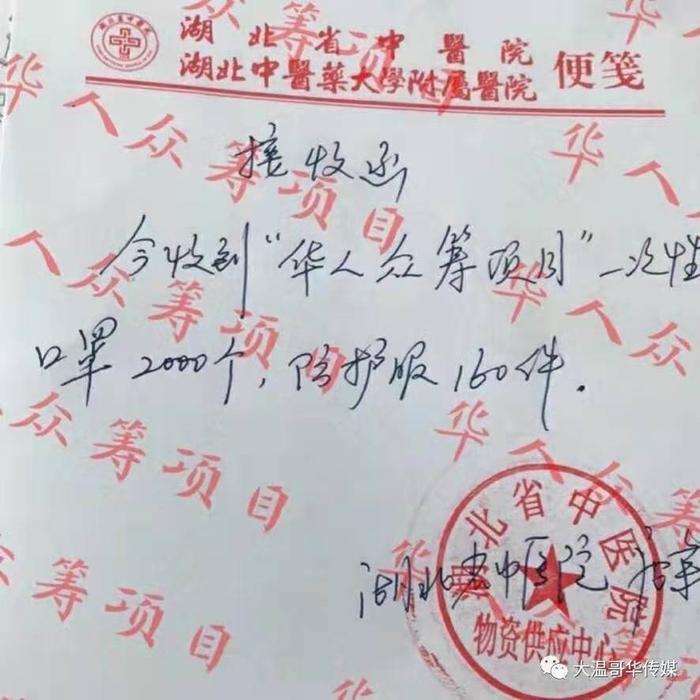 湖北省中醫院
湖北中醫藥大學附屬醫院
便笺
接收函
今收到“华人众筹项目”一次性
口罩2000个，防护服160件.
湖北省中医院
湖北省中医院
物资供应中心
华人众筹项目
华人众筹项目
华人众筹项目
华人众筹项目
大温哥华传媒